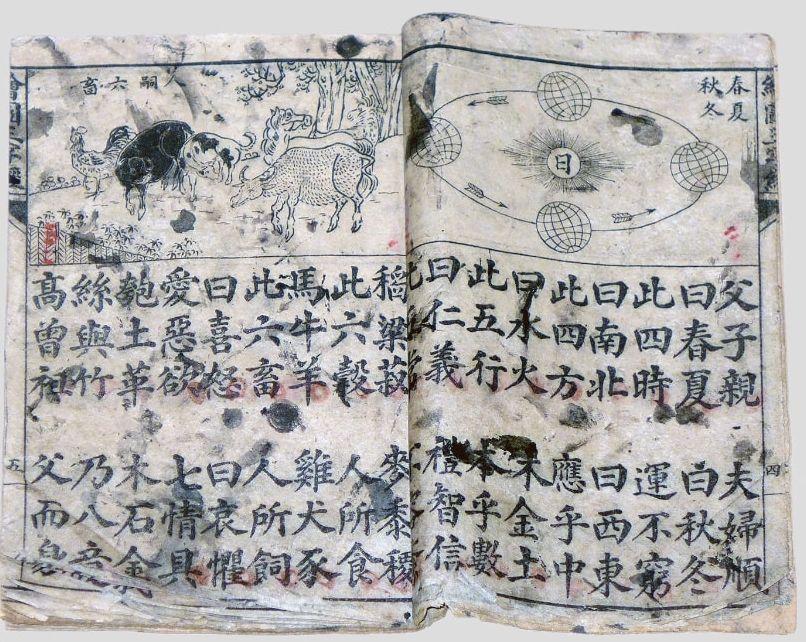 春夏
秋冬
日
父子親 夫婦順
曰春夏 曰秋冬
此四時 運不窮
曰南北 曰西東
此四方 應乎中
曰水火 木金土
此五行 本乎數
曰仁義 禮智信
四
嗣六畜
稻粱菽 麥黍稷
此六穀 人所食
馬牛羊 雞犬豕
此六畜 人所飼
曰喜怒 曰哀懼
愛惡欲 七情具
匏土革 木石金
絲與竹 乃八音
髙曾祖 父而身
五